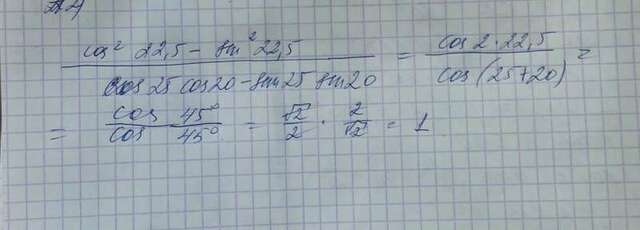 cos² 22,5 - sin² 22,5 / cos 25 cos 20 - sin 25 sin 20 = cos 2 · 22,5 / cos (25+20) =
= cos 45° / cos 45° = √2/2 · 2/√2 = 1